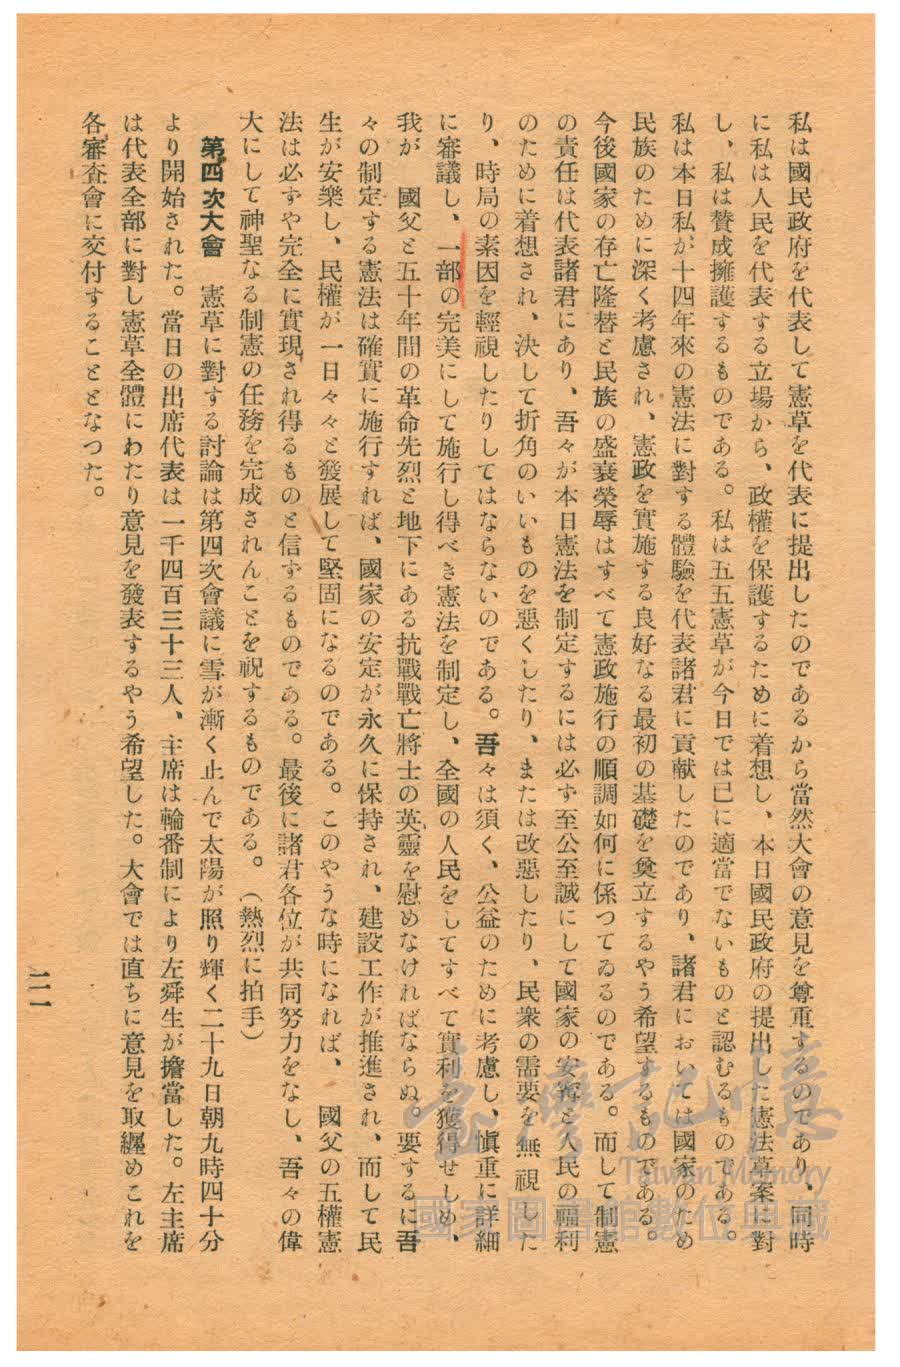 私は國民政府を代表して憲草を代表に提出したのであるから當然大會の意見を尊重するのであり、同時
に私は人民を代表する立場から、政權を保護するために着想し、本日國民政府の提出した憲法草案に對
し、私は賛成擁護するものである。私は五五憲草が今日では已に適當でないものと認むるものである。
私は本日私が十四年來の憲法に對する體驗を代表諸君に貢献したのであり、諸君においては國家のため
民族のために深く考慮され、憲政を實施する良好なる最初の基礎を奠立するやう希望するものである。
今後國家の存亡隆替と民族の盛衰榮辱はすべて憲政施行の順調如何に係つてゐるのである。而して制憲
の責任は代表諸君にあり、吾々が本日憲法を制定するには必ず至公至誠にして國家の安寗と人民の福利
のために着想され、決して折角のいいものを惡くしたり、または改惡したり、民衆の需要を無視した
り、時局の素因を輕視したりしてはならないのである。吾々は須く、公益のために考慮し、愼重に詳細
に審議し、一部の完美にして施行し得べき憲法を制定し、全國の人民をしてすべて實利を獲得せしめ、
我が　國父と五十年間の革命先烈と地下にある抗戰戰亡將士の英靈を慰めなければならぬ。要するに吾
々の制定する憲法は確實に施行すれば、國家の安定が永久に保持され、建設工作が推進され、而して民
生が安樂し、民權が一日々々と發展して堅固になるのである。このやうな時になれば、　國父の五權憲
法は必ずや完全に實現され得るものと信ずるものである。最後に諸君各位が共同努力をなし、吾々の偉
大にして神聖なる制憲の任務を完成されんことを祝するものである。（熱烈に拍手）
第四次大會　憲草に對する討論は第四次會議に雪が漸く止んで太陽が照り輝く二十九日朝九時四十分
より開始された。當日の出席代表は一千四百三十三人、主席は輪番制により左舜生が擔當した。左主席
は代表全部に對し憲草全體にわたり意見を發表するやう希望した。大會では直ちに意見を取纒めこれを
各審査會に交付することとなつた。
二一
臺灣記憶
Taiwan Memory
國家圖書館數位典藏